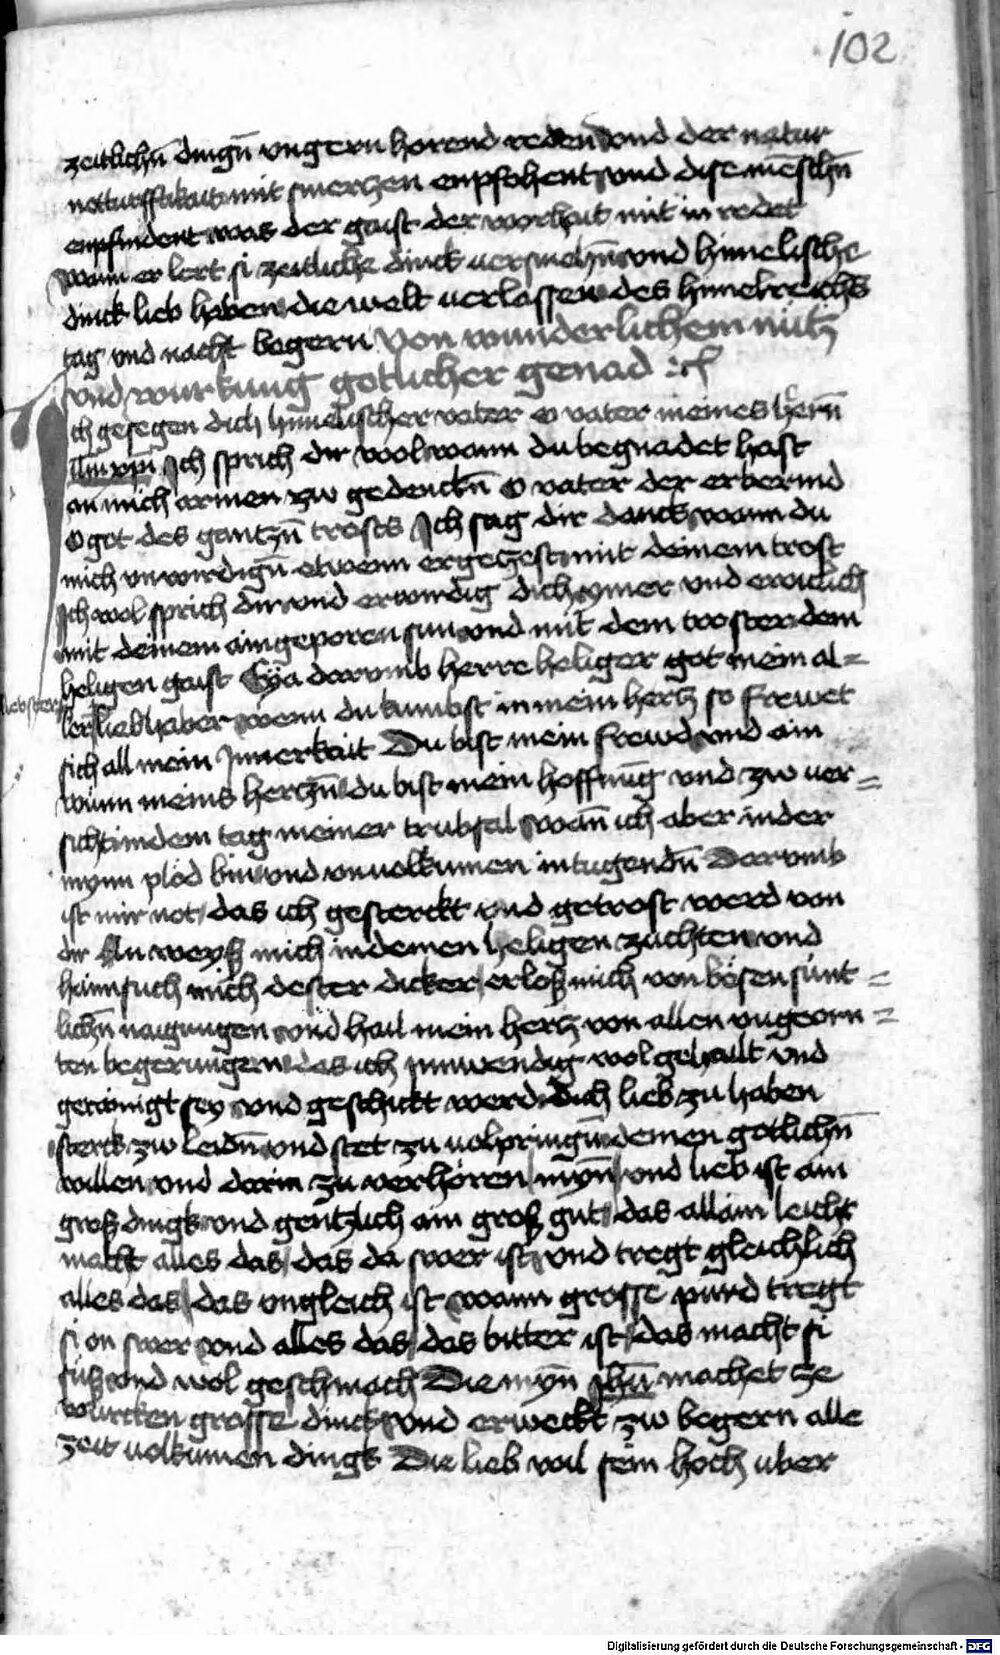 102
zeitlichn̄ dingn̄ vngern horend reden vnd der natur
notturfftikait mit smerczen enpfohent vnd dise mēschn̄
enpfindent was der gaist der worhait mit in redet
wann er lert si zeitliche dinck versmehn̄ vnd himelische
dinck lieb haben die welt verlassen des himelreichs
tag vnd nacht begern Von wunderlichem nütz
vnd wurkung gotlicher genad
Ich gesegen dich himelischer vater o vater meines hern̄
ihu xpi Ich sprich dir wol wann du begnadet hast
an mich armen zw gedenckn̄ O vater der erbermd
o got des gantzn̄ trosts Ich sag dir danck wann du
mich vnwirdign̄ etwenn ergeczest mit deinem trost
Ich wol sprich dir vnd erwirdig dich ymer vnd ewiclich
mit deinem aingeporen sun vnd mit dem troster dem
heligen gaist Eya darvmb herre heliger got mein al=
ler liebhaber wenn du kumbst in mein hertz so frewet
liebster
sich all mein Innerkait Du bist mein frewd vnd ain
wunn meins herczn̄ du bist mein hoffnūg vnd zw ver=
sicht in dem tag meiner trubsal wan̄ ich aber in der
mynn plöd bin vnd vnuolkumen in tugendn̄ Darvmb
ist mir not das ich gesterckt vnd getrost werd von
dir An weyß mich in deinen heligen zuchten vnd
haimsuch mich dester dicker erloß mich von bösen sünt=
lichn̄ naigungen vnd hail mein hertz von allen vngeorn=
ten begerungen das ich innwendig wol gehailt vnd
gerainigt sey vnd geschickt werd dich lieb zu haben
sterck zw leidn̄ vnd stet zu volpringn̄ deinen gotlichn̄
willen vnd darin zu verhören myn̄ vnd lieb ist ain
groß dingk vnd gentzlich ain groß gut das allain leicht
macht alles das das da swer ist vnd tregt gleichlich
alles das das vngleich ist wann grosse purd tregt
si on swer vnd alles das das bitter ist das macht si
süß vnd wol geschmach Die myn̄ ihū machet ze
wurcken grosse dinck vnd erweckt zw begern alle
zeit volkumen dingk Die lieb wil sein hoch vber
Digitalisierung gefördert durch die Deutsche Forschungsgemeinschaft - DFG